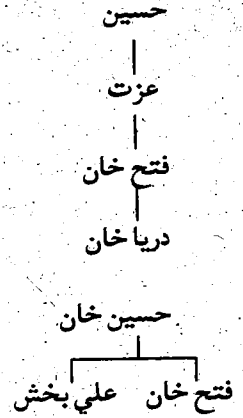 حسين
عزت
فتح خان
دريا خان
حسين خان
فتح خان علي بخش